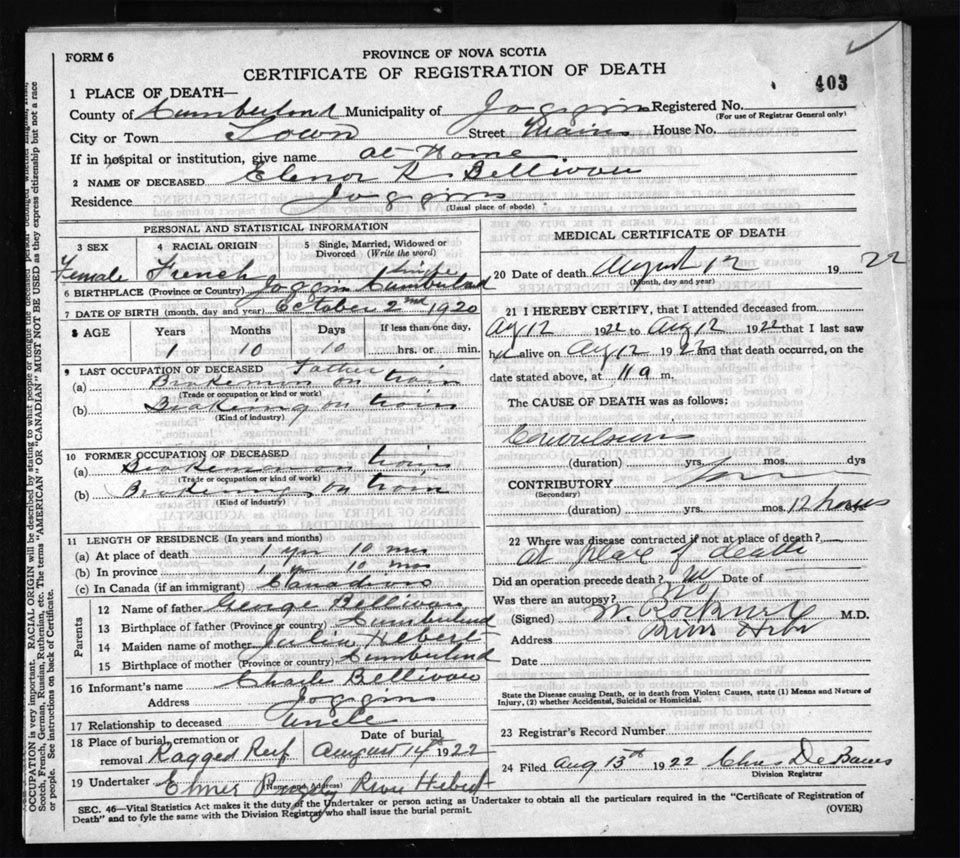 FORM 6
PROVINCE OF NOVA SCOTIA
CERTIFICATE OF REGISTRATION OF DEATH
403
1 PLACE OF DEATH—
County of Cumberland Municipality of Joggins Registered No.
(For use of Registrar General only)
City or Town Town Street Main House No.
If in hospital or institution, give name at Home
2 NAME OF DECEASED Elenor R Bellivau
Residence Joggins
(Usual place of abode)
PERSONAL AND STATISTICAL INFORMATION
3 SEX 4 RACIAL ORIGIN 5 Single, Married, Widowed or Divorced (Write the word)
Female French Single
6 BIRTHPLACE (Province or Country) Joggin Cumberland
7 DATE OF BIRTH (month, day and year) October 2nd 1920
8 AGE Years Months Days If less than one day,
1 10 10 hrs. or min.
9 LAST OCCUPATION OF DECEASED Father
(a) Brakemon on train
(Trade or occupation or kind or work)
(b) Braking on train
(Kind of industry)
10 FORMER OCCUPATION OF DECEASED
(a) Brakeman on train
(Trade or occupation or kind of work)
(b) on train
(Kind of industry)
11 LENGTH OF RESIDENCE (In years and months)
(a) At place of death 1 yr 10 mos
(b) In province 1 yr 10 mos
(c) In Canada (if an immigrant) Canadian
Parents
12 Name of father George Bellivau
13 Birthplace of father (Province or country) Cumberland
14 Maiden name of mother Julia Hebert
15 Birthplace of mother (Province or country) Cumberland
16 Informant's name Charle Bellivau
Address Joggin
17 Relationship to deceased Uncle
18 Place of burial, cremation or removal Ragged Reef Date of burial August 14th 1922
19 Undertaker Elmer River Hebert
(Name and address)
MEDICAL CERTIFICATE OF DEATH
20 Date of death August 12 1922
(Month, day and year)
21 I HEREBY CERTIFY, that I attended deceased from
Aug 12 1922 to Aug 12 1922 that I last saw
h alive on Aug 12 1922 and that death occurred, on the
date stated above, at 11 a m.
The CAUSE OF DEATH was as follows:
Convulsions
(duration) yrs. mos. dys
CONTRIBUTORY
(Secondary)
(duration) yrs. mos. 12 hours
22 Where was disease contracted if not at place of death?
at place of death
Did an operation precede death? no Date of
Was there an autopsy? no
(Signed) W. Rockwell M.D.
Address River Hebr
Date
State the Disease causing Death, or in death from Violent Causes, state (1) Means and Nature of
Injury, (2) whether Accidental, Suicidal or Homicidal.
23 Registrar's Record Number
24 Filed Aug 13th 1922 Chas De
Division Registrar
SEC. 46—Vital Statistics Act makes it the duty of the Undertaker or person acting as Undertaker to obtain all the particulars required in the "Certificate of Registration of
Death" and to fyle the same with the Division Registrar who shall issue the burial permit. (OVER)
OCCUPATION is very important. RACIAL ORIGIN will be described by stating to what people or tongue the deceased person belonged whether English, Irish,
Scotch, French, German, Russian, Ruthenian, etc. The terms "AMERICAN" OR "CANADIAN" MUST NOT BE USED as they express citizenship but not a race
or people. See instructions on back of Certificate.